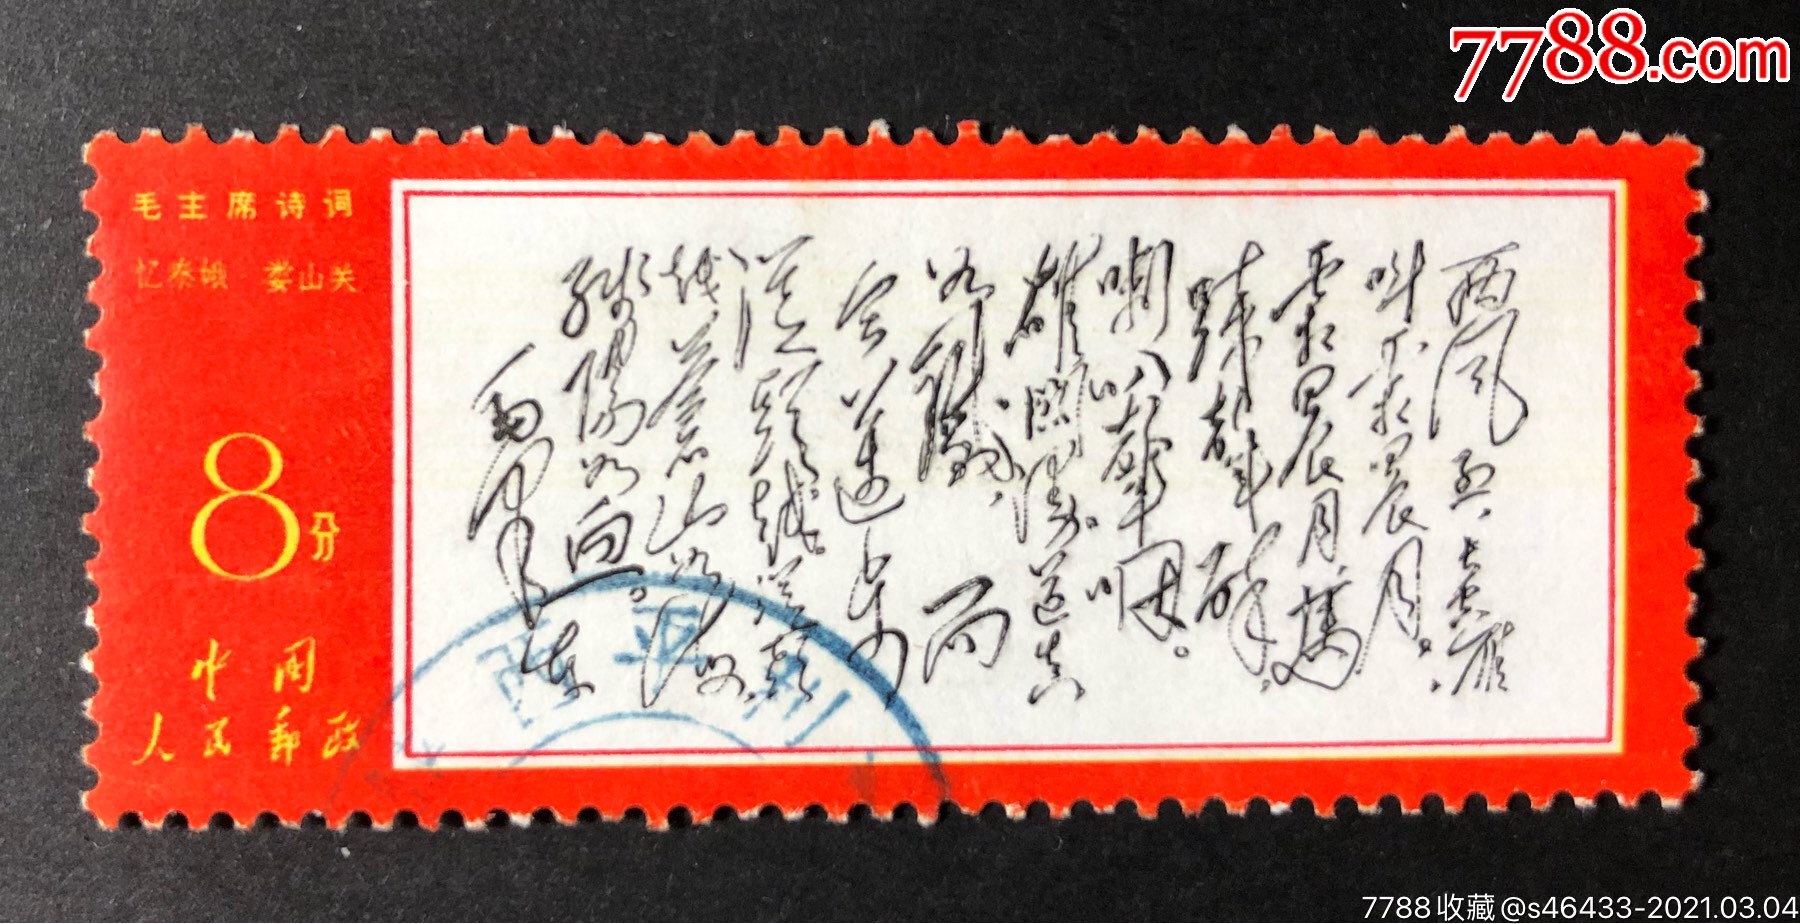 7788.com
毛主席诗词
忆秦娥 娄山关
8分
中国
人民邮政
西风烈，長空雁
叫霜晨月。
霜晨月，馬
蹄聲碎，
喇叭聲咽。
雄關漫道真
如鐵，而
今邁步
從頭越。從頭
越，蒼山如海，
殘陽如血。
毛澤東
7788收藏@s46433-2021.03.04